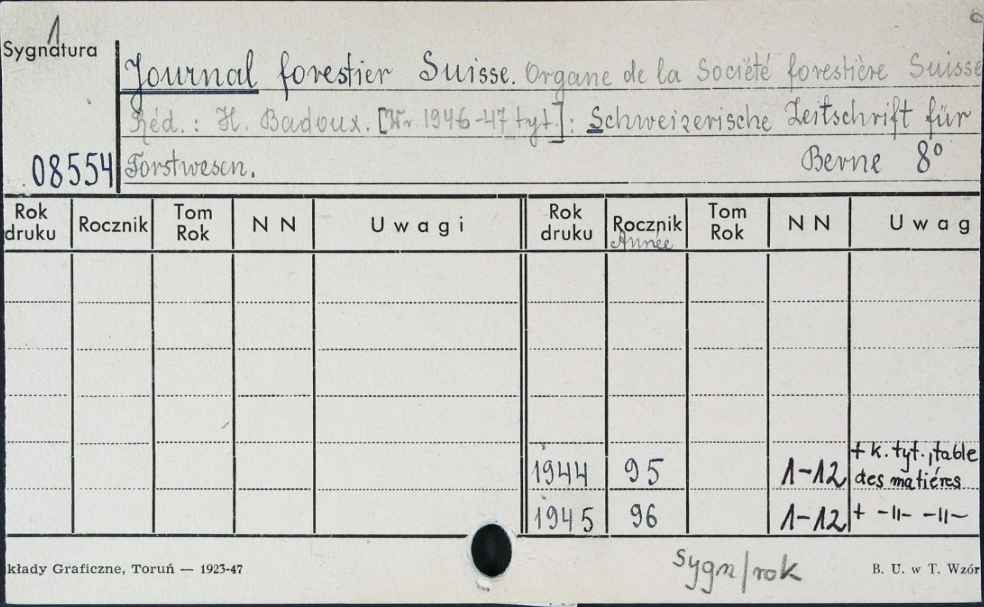 1
Sygnatura
Journal forestier Suisse. Organe de la Société forestière Suisse
Réd.: H. Badoux. [W r. 1946-47 tyt.]: Schweizerische Zeitschrift für
08554 Forstwesen. Berne 8°
Rok druku Rocznik Tom Rok N N Uwagi Rok druku Rocznik Année Tom Rok N N Uwag
1944 95 1-12 + k. tyt., table des matiéres
1945 96 1-12 + -||- -||-
Sygn/rok
kłady Graficzne, Toruń — 1923-47 B. U. w T. Wzór